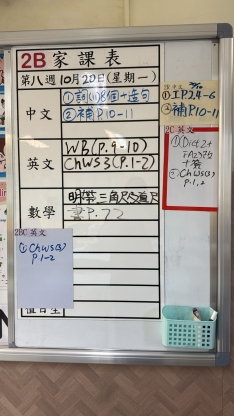 2B 家課表
第八週 10月20日(星期一)
中文
① 詞(8)8個+造句
② 補P.10-11
英文
WB(P.9-10)
ChWS3(P.1-2)
數學
明帶三角尺及直尺
書P.72
值日生
2BC 英文
① ChWS(3)
P.1-2
① I.P.2,4-6
② 補P.10-11
2C 英文
① Dict 2+
+簽
② ChWS(3)
P.1,2